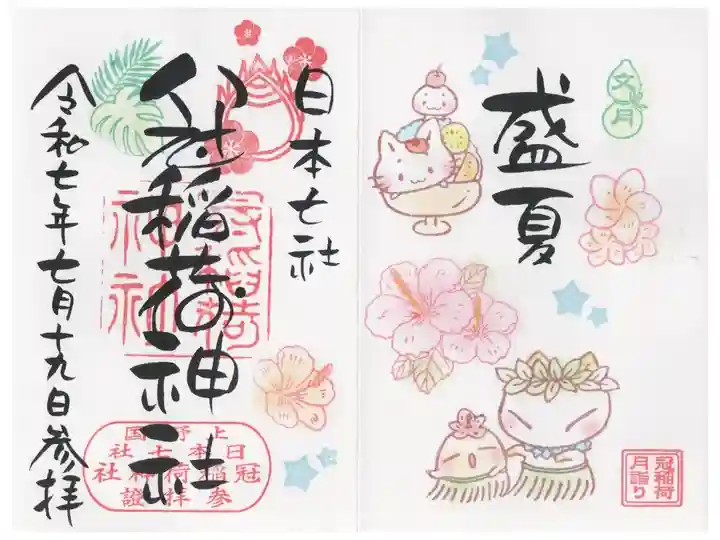 文月
盛夏
冠稲荷
月詣り
日本七社
冠稲荷神社
上野国
日本七社
冠稲荷神社
参拝證
令和七年七月十九日参拝